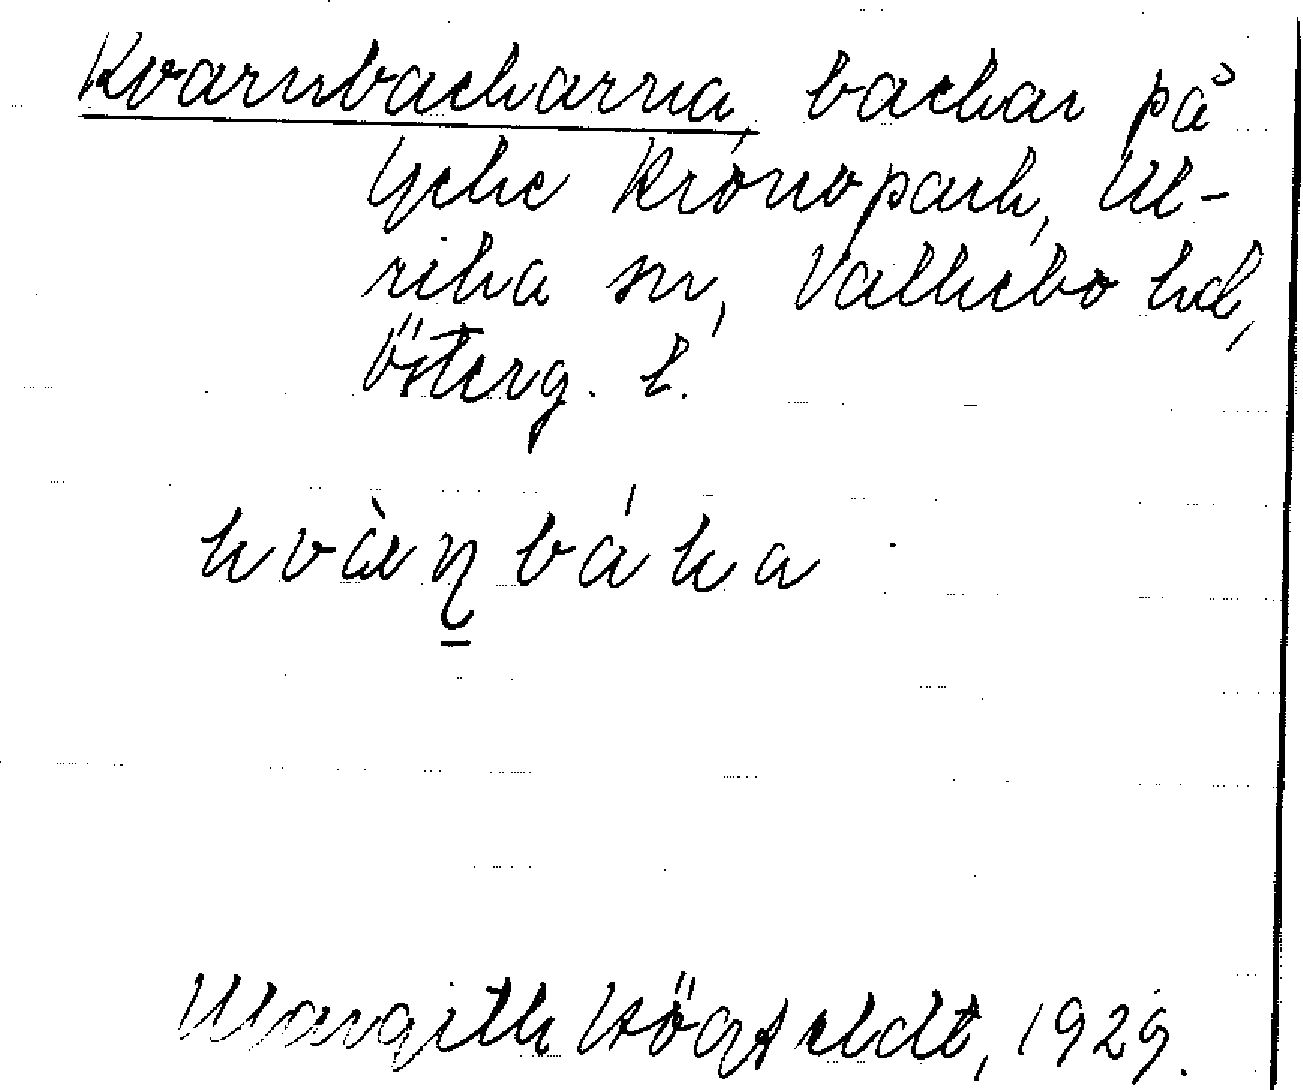 Kvarnbackarna, backar på
Yxhe Kronopark, Ul-
rika sn, Valkebo hd,
Österg. l.
kvàṇbáka
Margith Högfeldt, 1929.